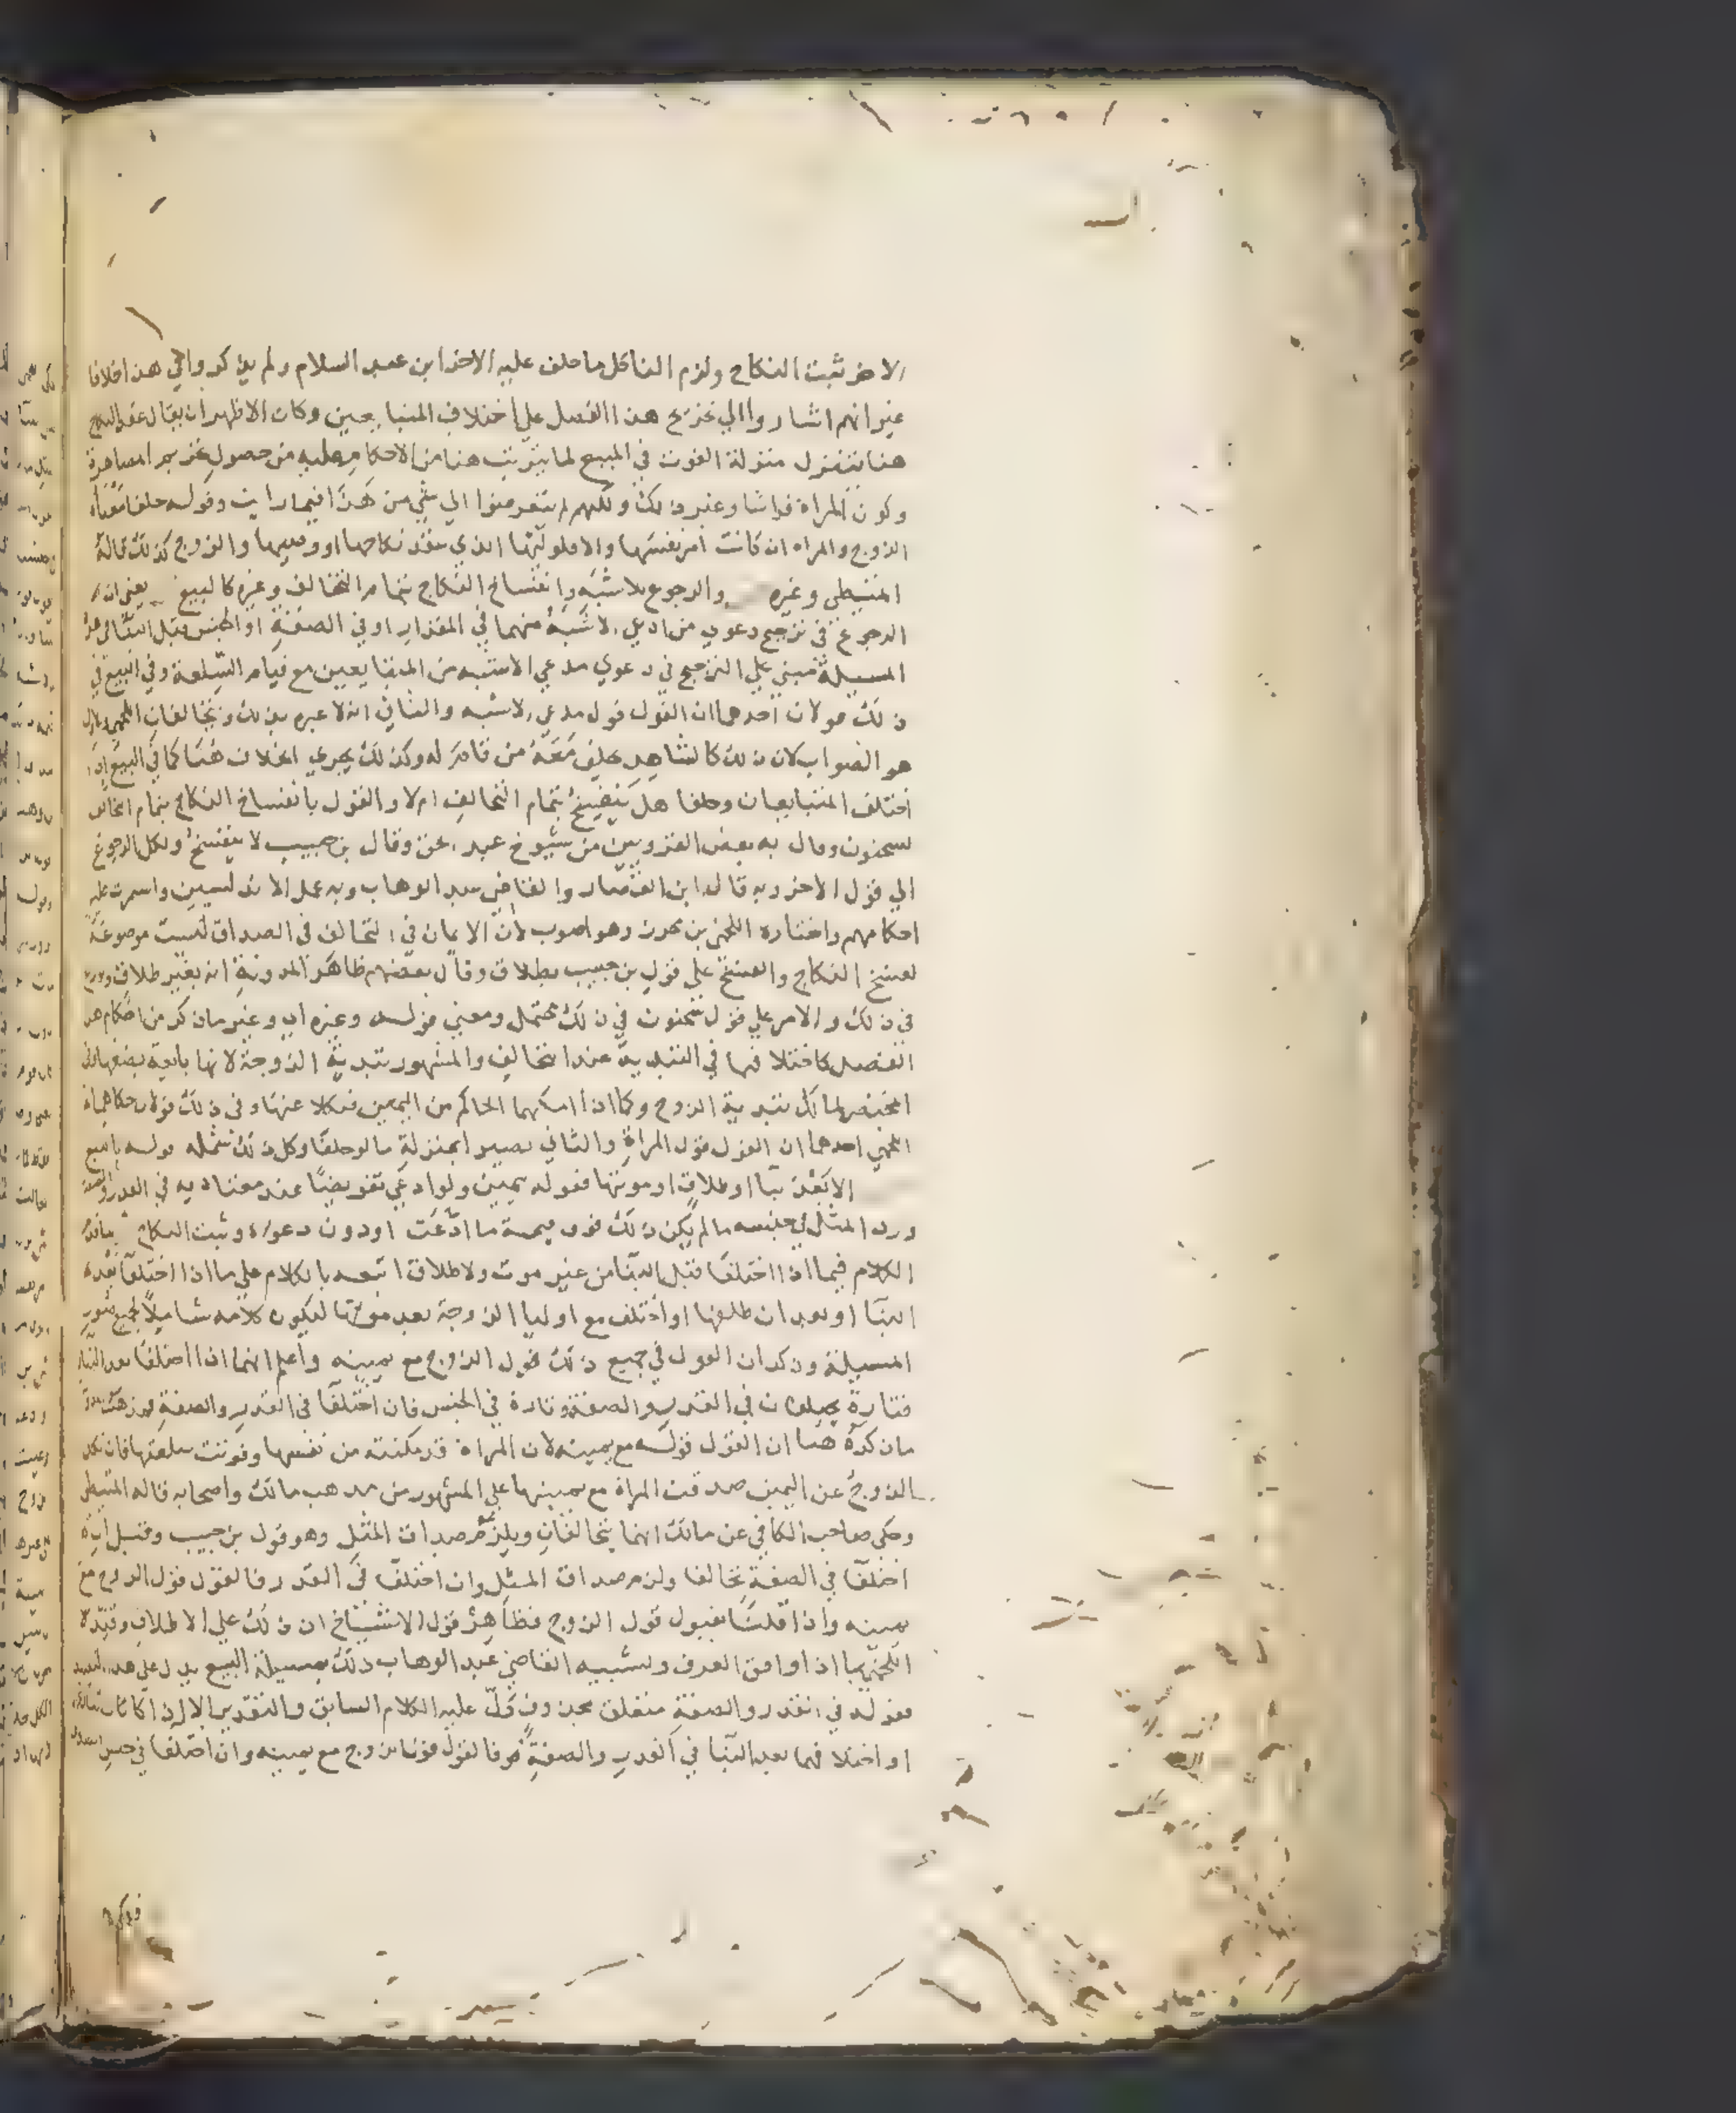 الاخر ثبت النكاح ولزم الناكل ما حلف عليه الاخر ابن عبد السلام ولم يذكروا في هذا خلافا
غير انهم اشاروا الي تخريج هذا الفصل علي اختلاف المتبايعين وكان الاظهر ان يقال عقد النكاح
هنا يتنزل منزلة الفوت في المبيع لما يترتب هنا من الاحكام عليه من حصول تحريم المصاهرة
وكون المراة فراشا وغير ذلك ولكنهم لم يتعرضوا الي شي من هذا فيما رايت وقوله حلفا معناه
الزوج والمراه ان كانت امر نفسها والا فلوليها الذي عقد نكاحها او وصيها والزوج كذلك قاله
المتيطي وغيره والرجوع للاشبه وانفساخ النكاح بتمام التحالف وغيره كالبيع يعني ان
الرجوع في ترجيح دعوي من ادعي الاشبه منهما في المقدار او في الصفة او الجنس قبل البنا في هذه
المسيلة مبني علي الترجيح في دعوي مدعي الاشبه من المتبايعين مع قيام السلعة وفي البيع في
ذلك قولان احدهما ان القول قول مدعي الاشبه والثاني انه لا عبره بذلك ويتحالفان اللخمي والاول
هو الصواب لان ذلك كالشاهد يحلف معه من قام له وكذلك يجري الخلاف هنا كما في البيع اذا
اختلف المتبايعان وحلفا هل ينفسخ بتمام التحالف ام لا والقول بانفساخ النكاح بتمام التحالف
لسحنون وقال به بعض القرويين من شيوخ عبد الحق وقال بن حبيب لا ينفسخ ولكل الرجوع
الي قول الاخر وبه قال ابن القصار والقاضي عبد الوهاب وبه عمل الاندلسيين واستمرت عليه
احكامهم واختاره اللخمي بن محرز وهو اصوب لان الايمان في التحالف في الصداق ليست موضوعة
لفسخ النكاح والفسخ علي قول بن حبيب بطلاق وقال بعضهم ظاهر المدونة انه بغير طلاق
في ذلك والامر علي قول سحنون في ذلك محتمل ومعني قوله وغيره اي وغير ما ذكر من احكام هذا
الفصل كاختلافهما في التبدية عند التحالف والمشهور تبدية الزوجة لانها بايعة بضعها وفي
المختصر لمالك تبدية الزوج وكما اذا امكنهما الحاكم من اليمين فنكلا عنها وفي ذلك قولان حكاهما
اللخمي احدهما ان القول قول المراة والثاني يصير بمنزلة ما لو حلفا وكل ذلك شمله قوله بالبيع
الا بعد بنا او طلاق او موتها فقوله بيمين ولو ادعي تفويضا عند معتاديه في القدر والصفة
ورد المثل في جنسه ما لم يكن ذلك فوق قيمة ما ادعت او دون دعواه وثبت النكاح
الكلام فيما اذا اختلفا قبل البنا من غير موت ولا طلاق اتبعه بالكلام علي ما اذا اختلفا بعده
البنا او بعد ان طلقها او اختلف مع اوليا الزوجة بعد موتها ليكون كلامه شاملا لجميع صور
المسيلة وذكر ان القول في جميع ذلك قول الزوج مع يمينه واعلم انهما اذا اختلفا بعد البنا
فتارة يختلفان في القدر والصفة وتارة في الجنس فان اختلفا في القدر والصفة
ما ذكره هنا ان القول قوله مع يمينه لان المراة قد مكنته من نفسها وفوتت سلعتها فان نكل
الزوج عن اليمين صدقت المراة مع يمينها علي المشهور من مذهب مالك واصحابه قاله المتيطي
وحكي صاحب الكافي عن مالك انهما يتحالفان ويلزم صداق المثل وهو قول بن حبيب وقيل ان
اختلفا في الصفة تحالفا ولزم صداق المثل وان اختلفا في القدر فالقول قول الزوج مع
يمينه واذا قلنا بقبول قول الزوج فظاهر قول الاشياخ ان ذلك علي الاطلاق وقيده
اللخمي بما اذا وافق العرف وتشبيه القاضي عبد الوهاب ذلك بمسيلة البيع يدل علي هذا التقييد
فقوله في القدر والصفة متعلق بمحذوف دل عليه الكلام السابق والتقدير الا ان
او اختلافهما بعد البنا في القدر والصفة فالقول قول الزوج مع يمينه وان اختلفا في جنس الصداق